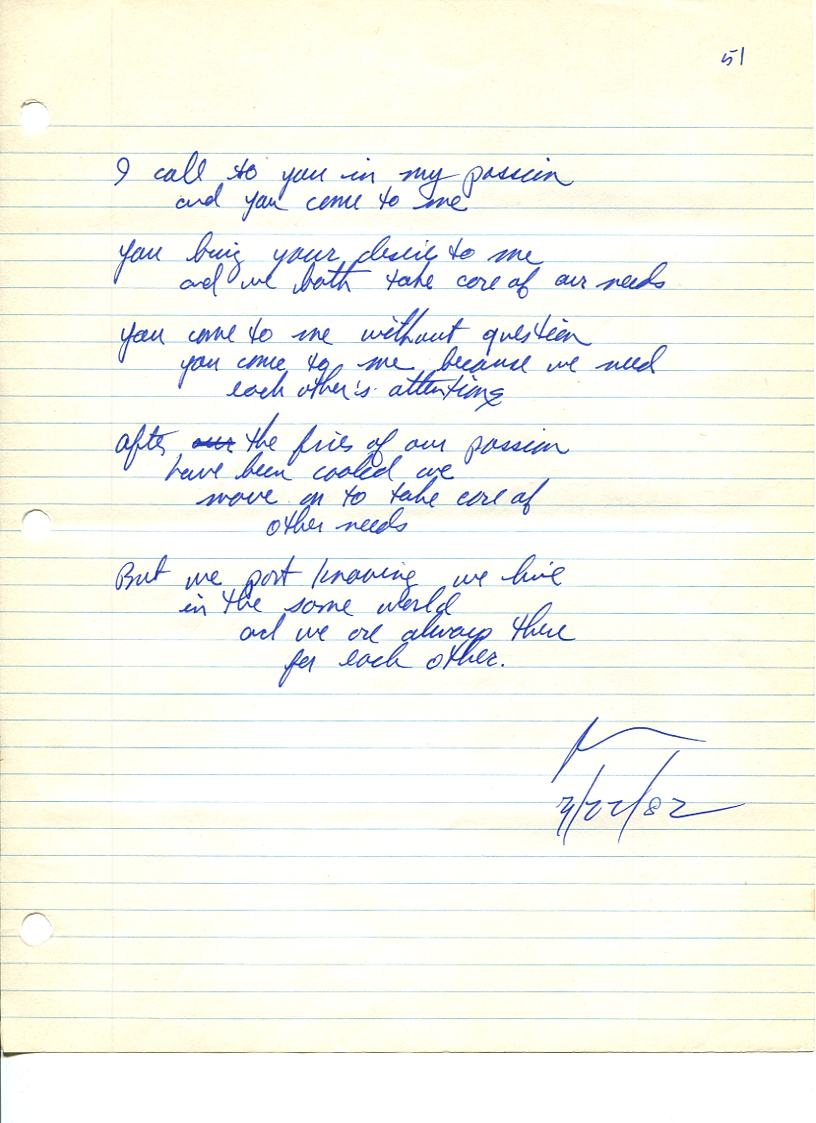 51
I call to you in my passion
and you come to me
you bring your desire to me
and we both take care of our needs
you come to me without question
you come to me because we need
each other's attentions
after our the fires of our passion
have been cooled we
move on to take care of
other needs
But we part knowing we live
in the same world
and we are always there
for each other.
7/22/82